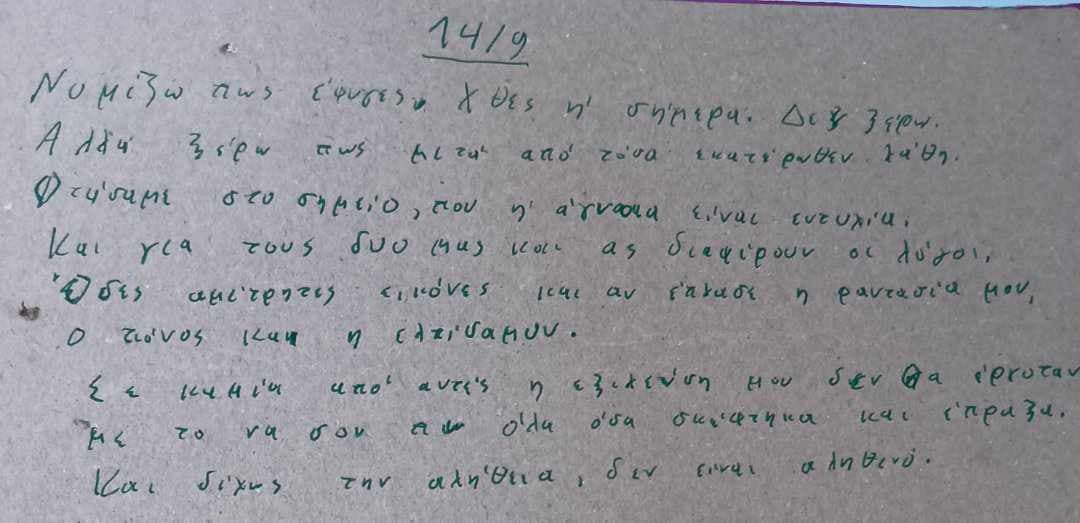 14/9
Νομίζω πως έφυγες. Χθες ή σήμερα. Δεξ ξέρω.
Αλλά ξέρω πως μετά από τόσα εκατέρωθεν λάθη.
Φτάσαμε στο σημείο, που η άγνοια είναι ευτυχία.
Και για τους δυο μας και ας διαφέρουν οι λόγοι.
Όσες αμέτρητες εικόνες και αν έπλασε η φαντασία μου,
ο πόνος και η ελπίδα μου.
Σε καμία από αυτές η εξιλέωση μου δεν θα έρχοταν
με το να σου πω όλα όσα σκέφτηκα και έπραξα.
Και δίχως την αλήθεια, δεν είναι αληθινό.